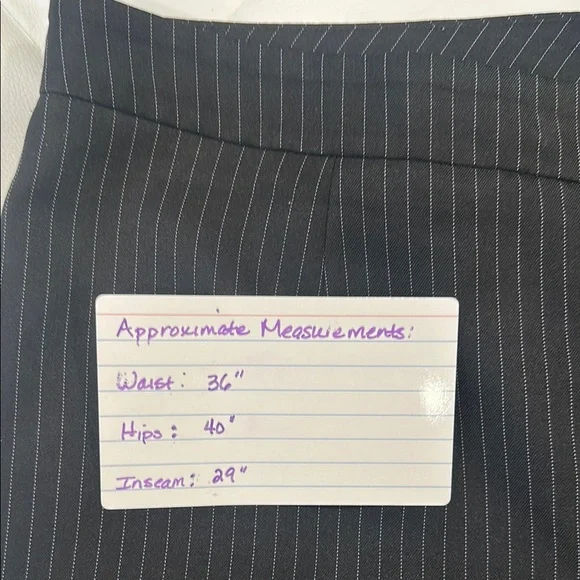 Approximate Measurements:
Waist: 36"
Hips: 40"
Inseam: 29"